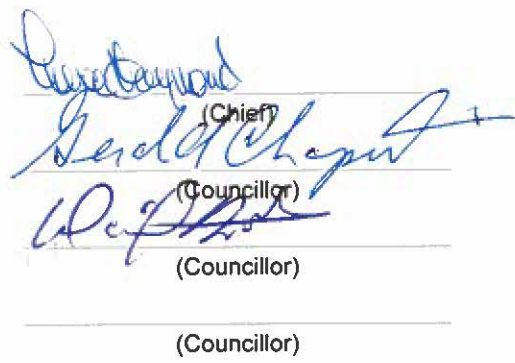 (Chief)
Gerald Chaput
(Councillor)
(Councillor)
(Councillor)